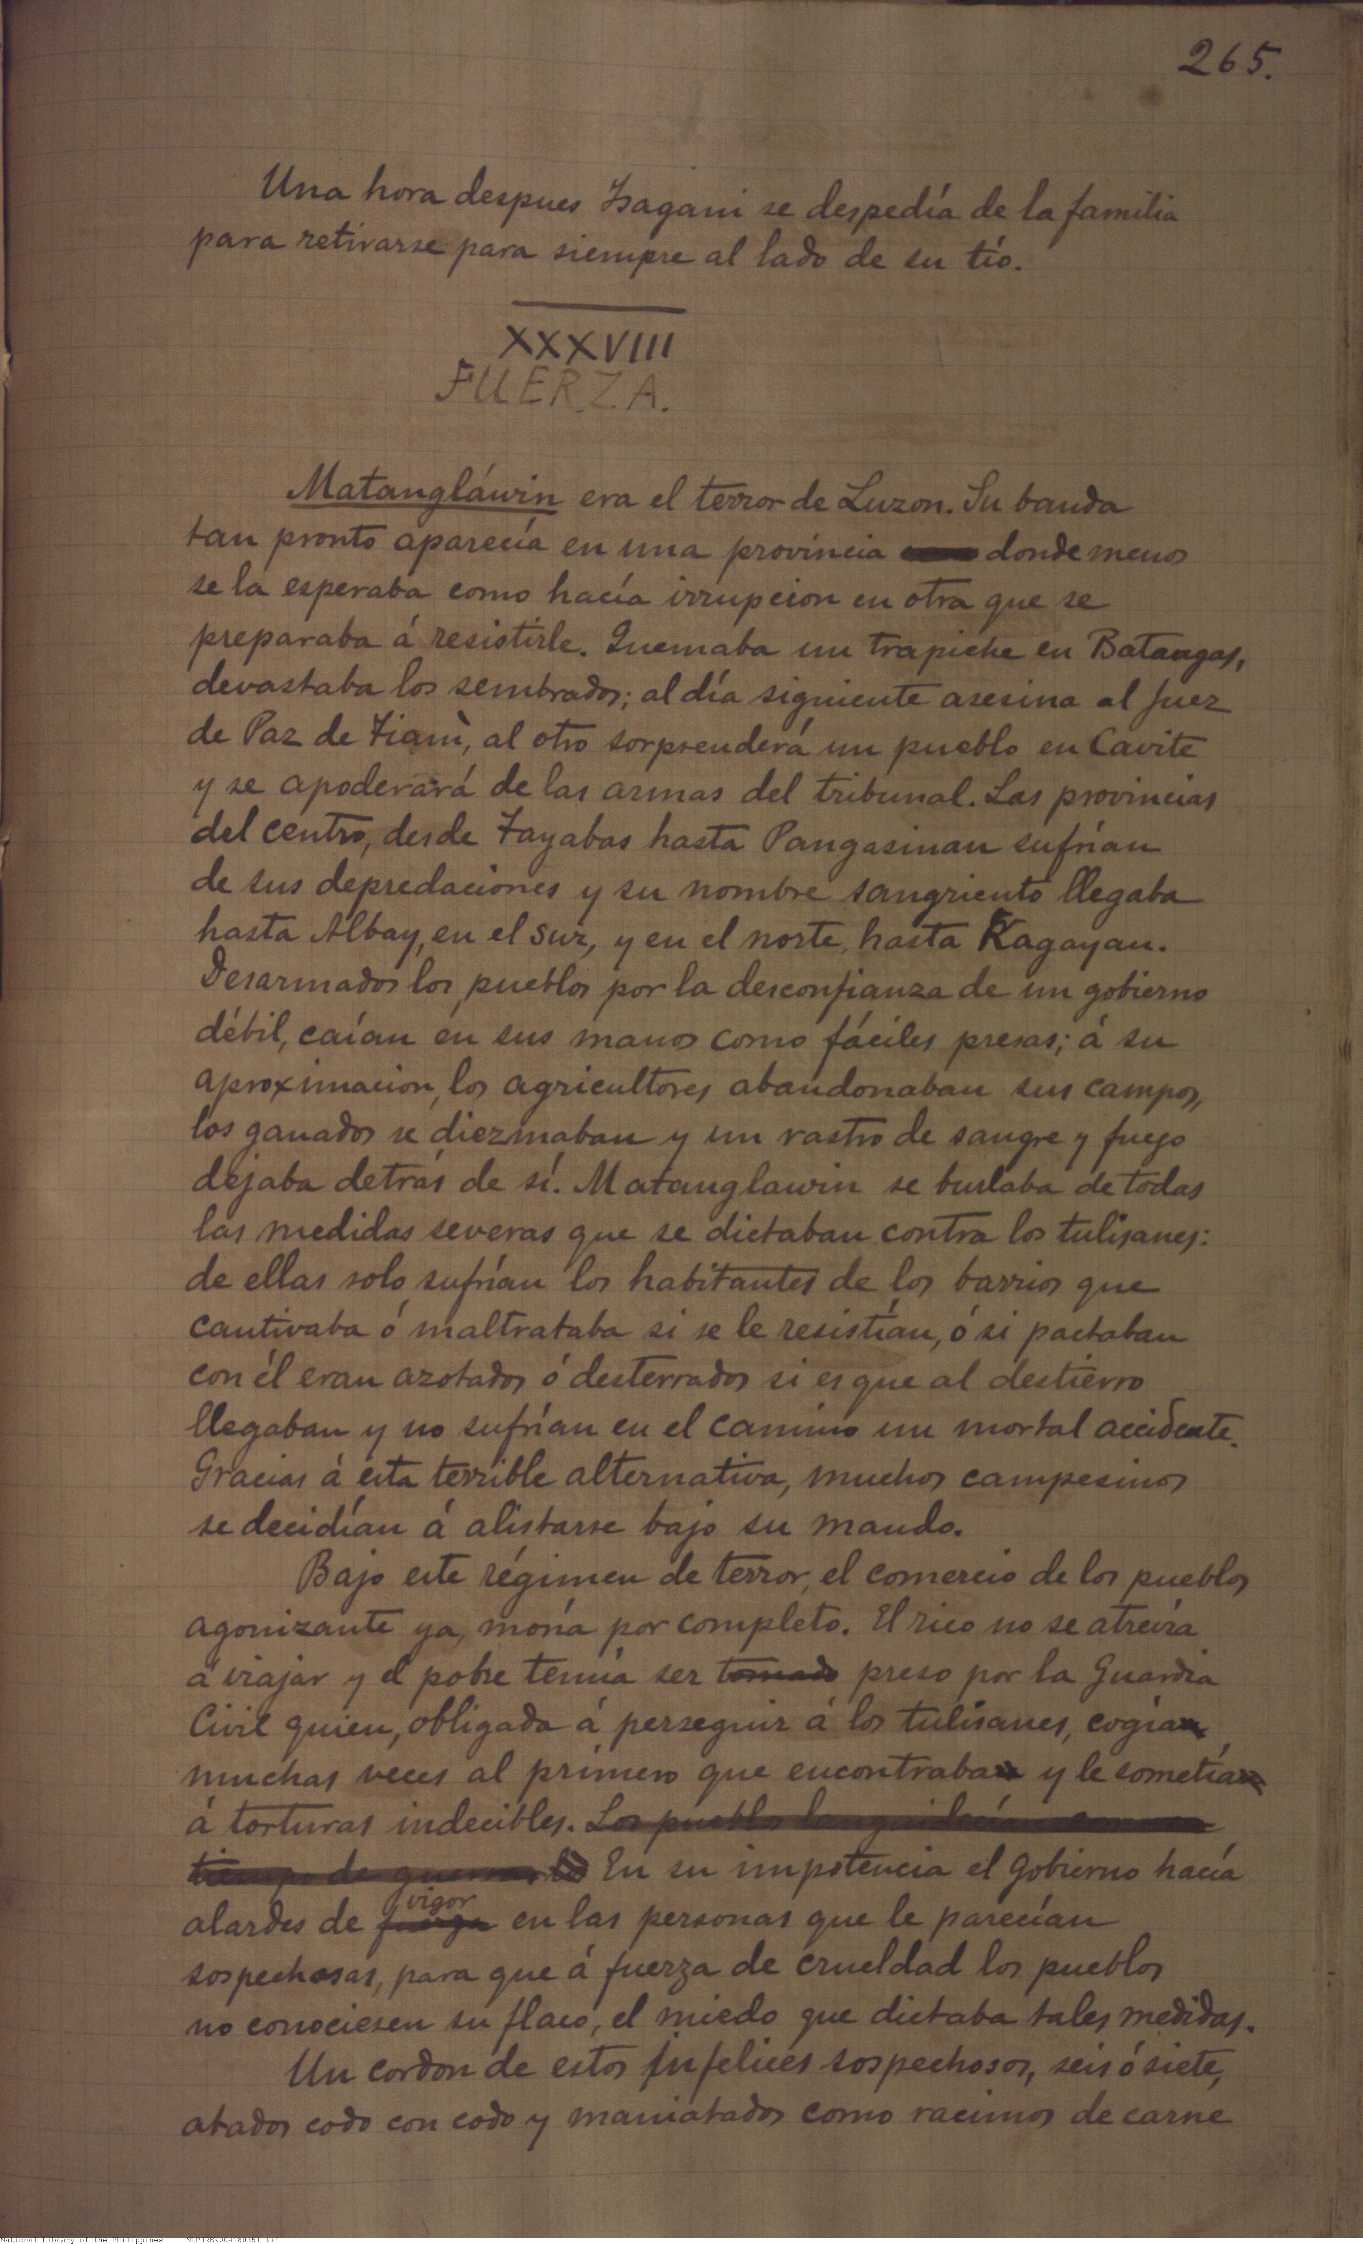 265.
Una hora despues Isagani se despedía de la familia
para retirarse para siempre al lado de su tío.
XXXVIII
FUERZA.
Matangláwin era el terror de Luzon. Su banda
tan pronto aparecía en una provincia donde menos
se la esperaba como hacía irrupcion en otra que se
preparaba á resistirle. Quemaba un trapiche en Batangas,
devastaba los sembrados; al día siguiente asesina al Juez
de Paz de Tiani, al otro sorprenderá un pueblo en Cavite
y se apoderará de las armas del tribunal. Las provincias
del centro, desde Tayabas hasta Pangasinan sufrían
de sus depredaciones y su nombre sangriento llegaba
hasta Albay, en el sur, y en el norte, hasta Kagayan.
Desarmados los pueblos por la desconfianza de un gobierno
débil, caían en sus manos como fáciles presas; á su
aproximacion, los agricultores abandonaban sus campos,
los ganados se diezmaban y un rastro de sangre y fuego
dejaba detrás de sí. Matanglawin se burlaba de todas
las medidas severas que se dictaban contra los tulisanes:
de ellas solo sufrían los habitantes de los barrios que
cautivaba ó maltrataba si se le resistían, ó si pactaban
con él eran azotados ó desterrados si es que al destierro
llegaban y no sufrían en el camino un mortal accidente.
Gracias á esta terrible alternativa, muchos campesinos
se decidían á alistarse bajo su mando.
Bajo este régimen de terror, el comercio de los pueblos
agonizante ya, moría por completo. El rico no se atrevía
á viajar y el pobre temía ser tomado preso por la Guardia
Civil quien, obligada á perseguir á los tulisanes, cogía
muchas veces al primero que encontraba y le sometía
á torturas indecibles. Los pueblos languidecían
tiempo de guerra En su impotencia el Gobierno hacía
vigor
alardes de fuerza en las personas que le parecían
sospechosas, para que á fuerza de crueldad los pueblos
no conociesen su flaco, el miedo que dictaba tales medidas.
Un cordon de estos infelices sospechosos, seis ó siete,
atados codo con codo y maniatados como racimos de carne
National Library of the Philippines